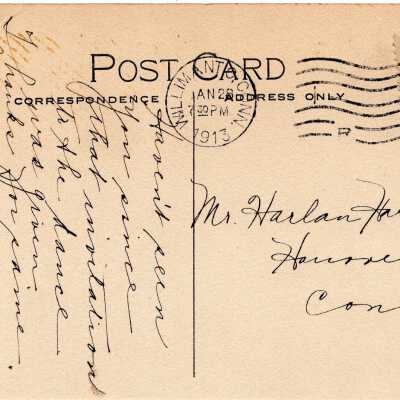 POST CARD
CORRESPONDENCE
ADDRESS ONLY
WILLIMANTIC, CONN.
JAN 28
PM
1913
Haven't seen
You since
that invitation
to the dance
I was given
Thanks for same.
Mr. Harlan Ha
Hanove
Con